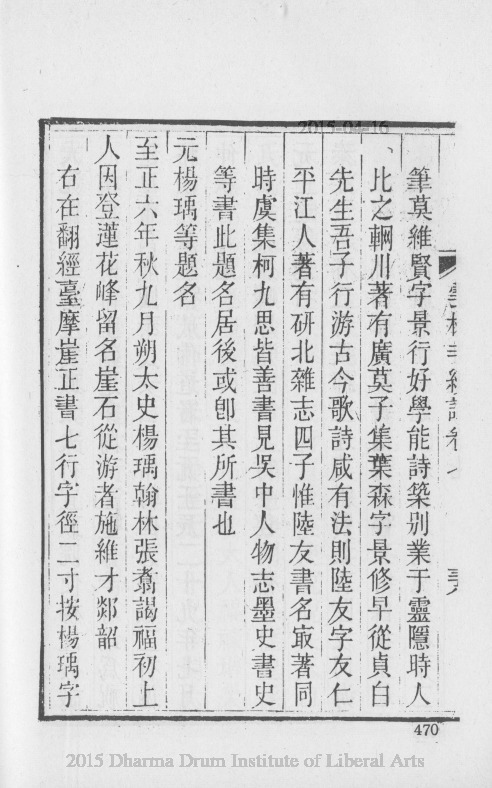 2015-04-16
筆莫維賢字景行好學能詩築别業于靈隱時人
比之輞川著有廣莫子集葉森字景修早從貞白
先生吾子行游古今歌詩咸有法則陸友字友仁
平江人著有硏北雜志四子惟陸友書名㝡著同
時虞集柯九思皆善書見吳中人物志墨史書史
等書此題名居後或卽其所書也
元楊瑀等題名
至正六年秋九月朔太史楊瑀翰林張翥謁福初上
人因登蓮花峰留名崖石從游者施維才郯韶
右在翻經臺摩崖正書七行字徑二寸按楊瑀字
470
2015 Dharma Drum Institute of Liberal Arts